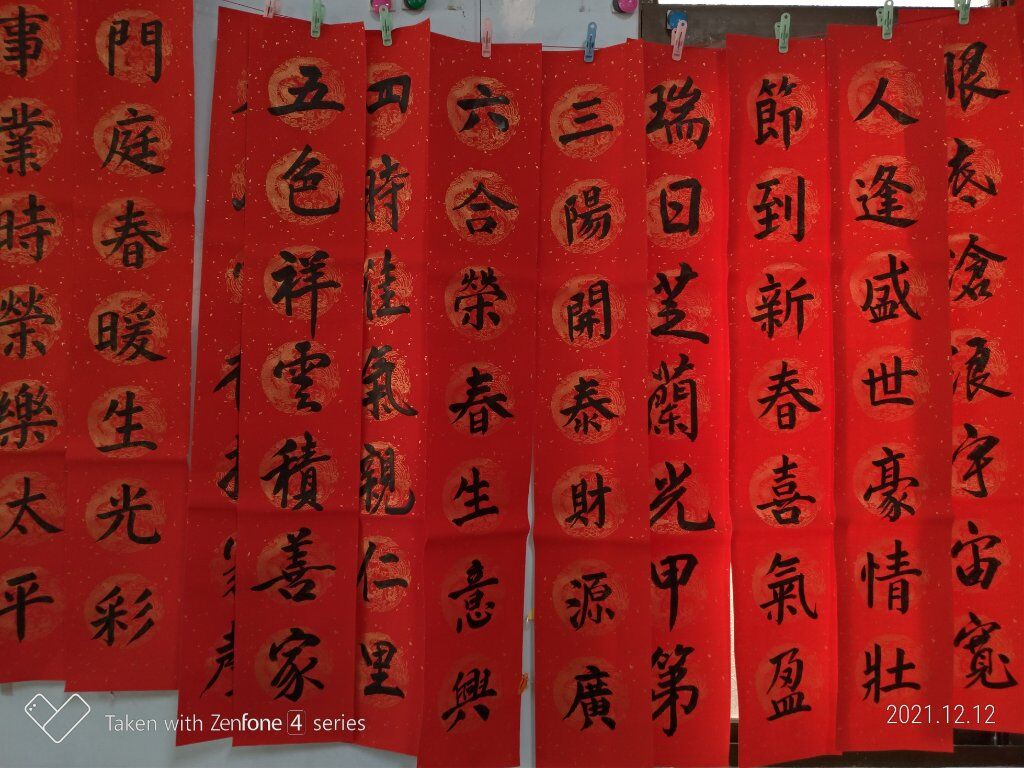 滄浪宇宙寬
人逢盛世豪情壯
節到新春喜氣盈
瑞日芝蘭光甲第
三陽開泰財源廣
六合榮春生意興
四時佳氣親仁里
五色祥雲積善家
門庭春暖生光彩
事業時榮樂太平
Taken with Zenfone 4 series
2021.12.12